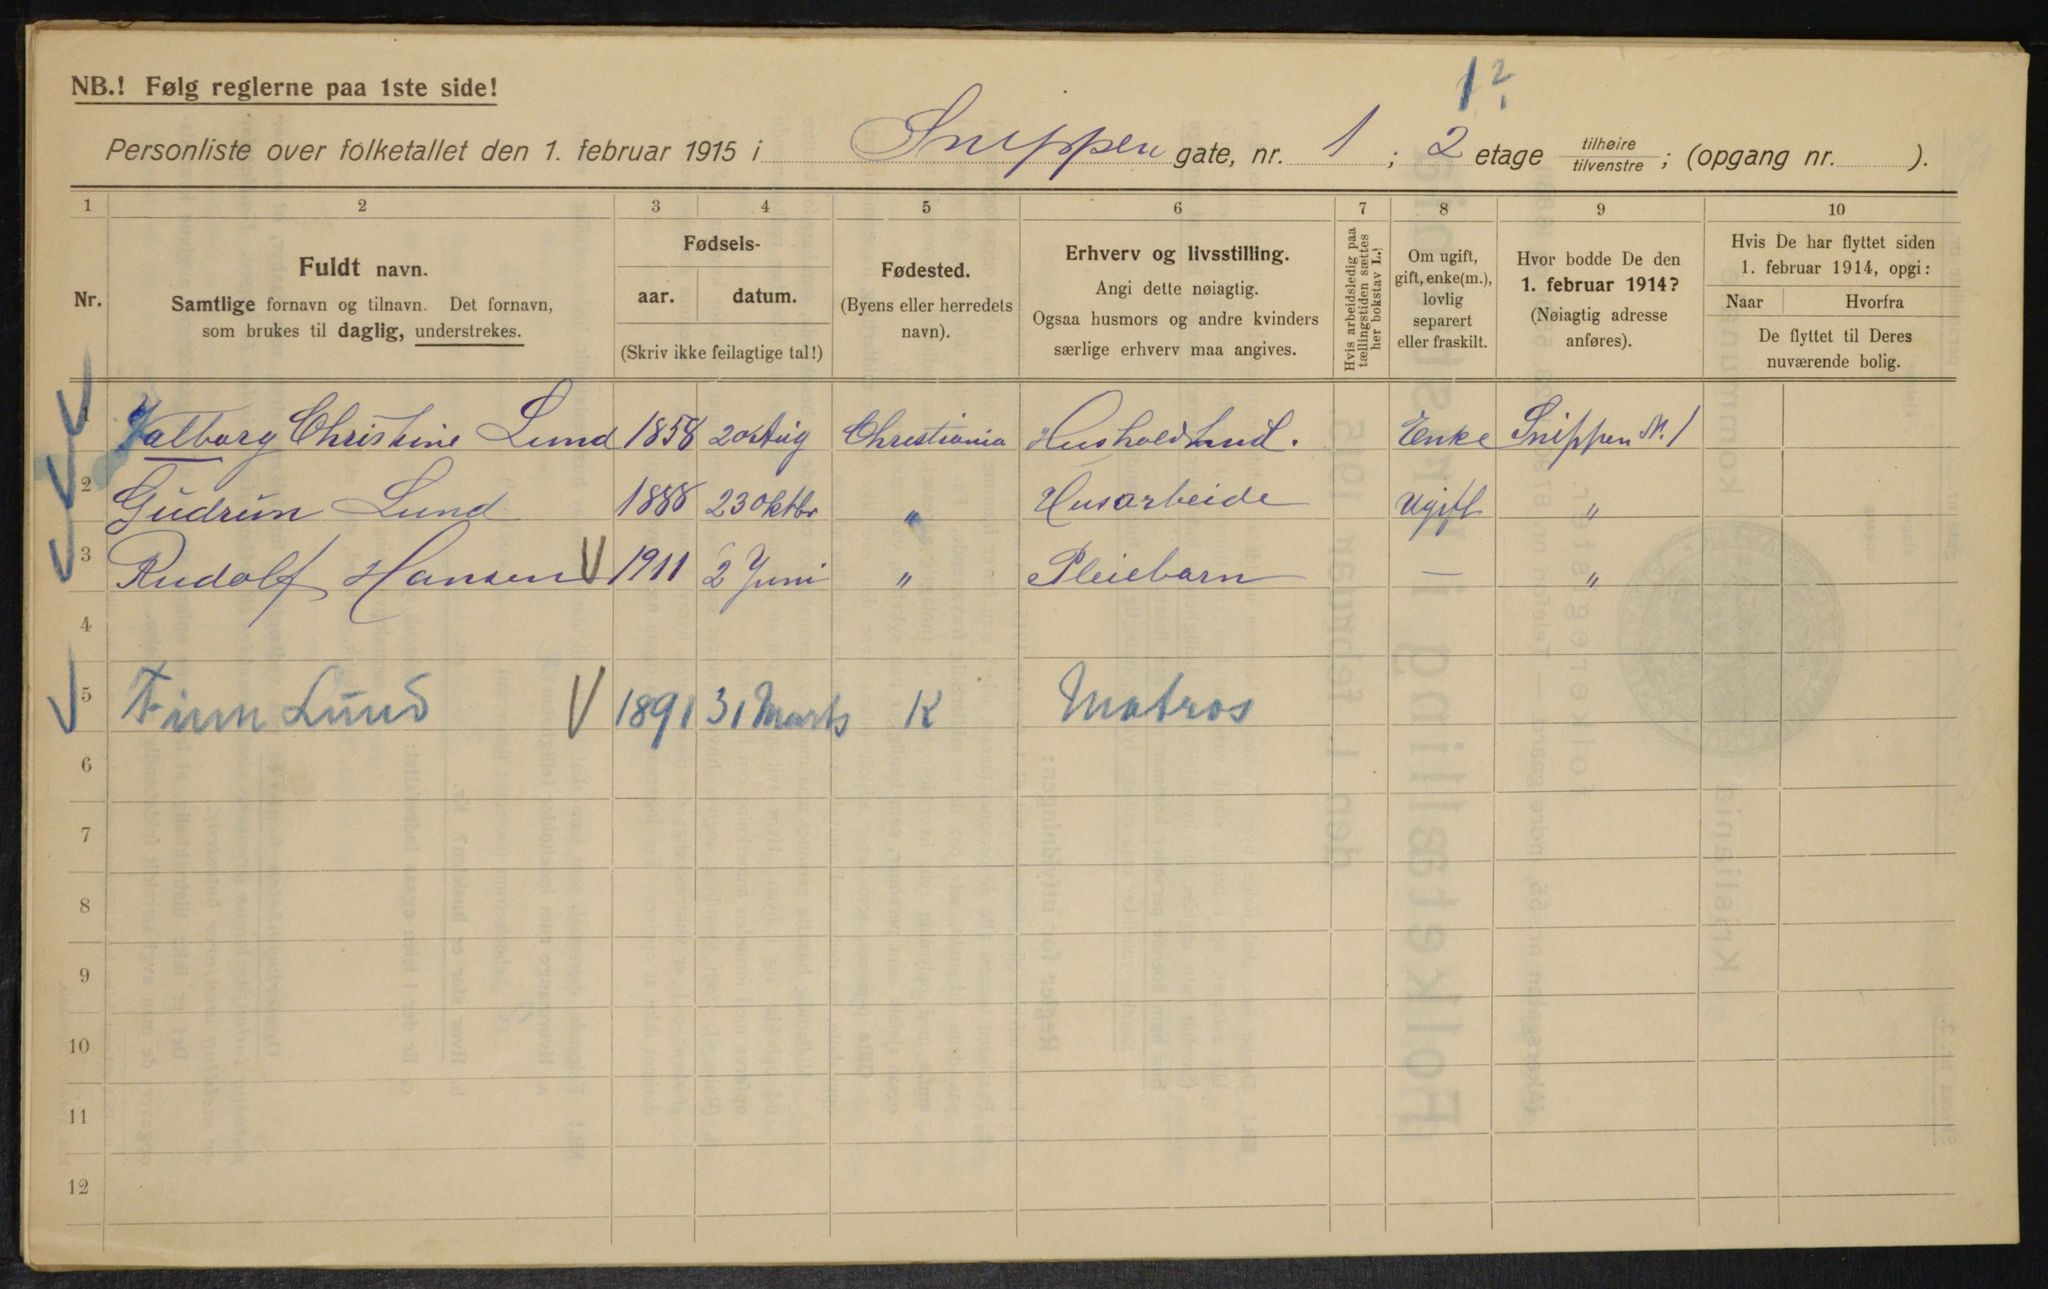 1 2/1
NB.! Følg reglerne paa 1ste side!
Personliste over folketallet den 1. februar 1915 i Snippen gate, nr. 1; 2 etage tilhøire/tilvenstre; (opgang nr. ).
1 2 3 4 5 6 7 8 9 10
Nr.
Fuldt navn.
Samtlige fornavn og tilnavn. Det fornavn,
som brukes til daglig, understrekes.
Fødsels-
aar. datum.
(Skriv ikke feilagtige tal!)
Fødested.
(Byens eller herredets
navn).
Erhverv og livsstilling.
Angi dette nøiagtig.
Ogsaa husmors og andre kvinders
særlige erhverv maa angives.
Hvis arbeidsledig paa
tællingstiden sættes
her bokstav L.!
Om ugift,
gift, enke(m.),
lovlig
separert
eller fraskilt.
Hvor bodde De den
1. februar 1914?
(Nøiagtig adresse
anføres).
Hvis De har flyttet siden
1. februar 1914, opgi:
Naar Hvorfra
De flyttet til Deres
nuværende bolig.
1 Valborg Christine Lund 1858 20 Aug Christiania Enke Snippen N. 1
2 Gudrun Lund 1888 23 oktbr " Husarbeide Ugift "
3 Rudolf Hansen 1911 2 Juni " Pleiebarn — "
4
5 Finn Lund 1891 31 Marts K Matros
6
7
8
9
10
11
12